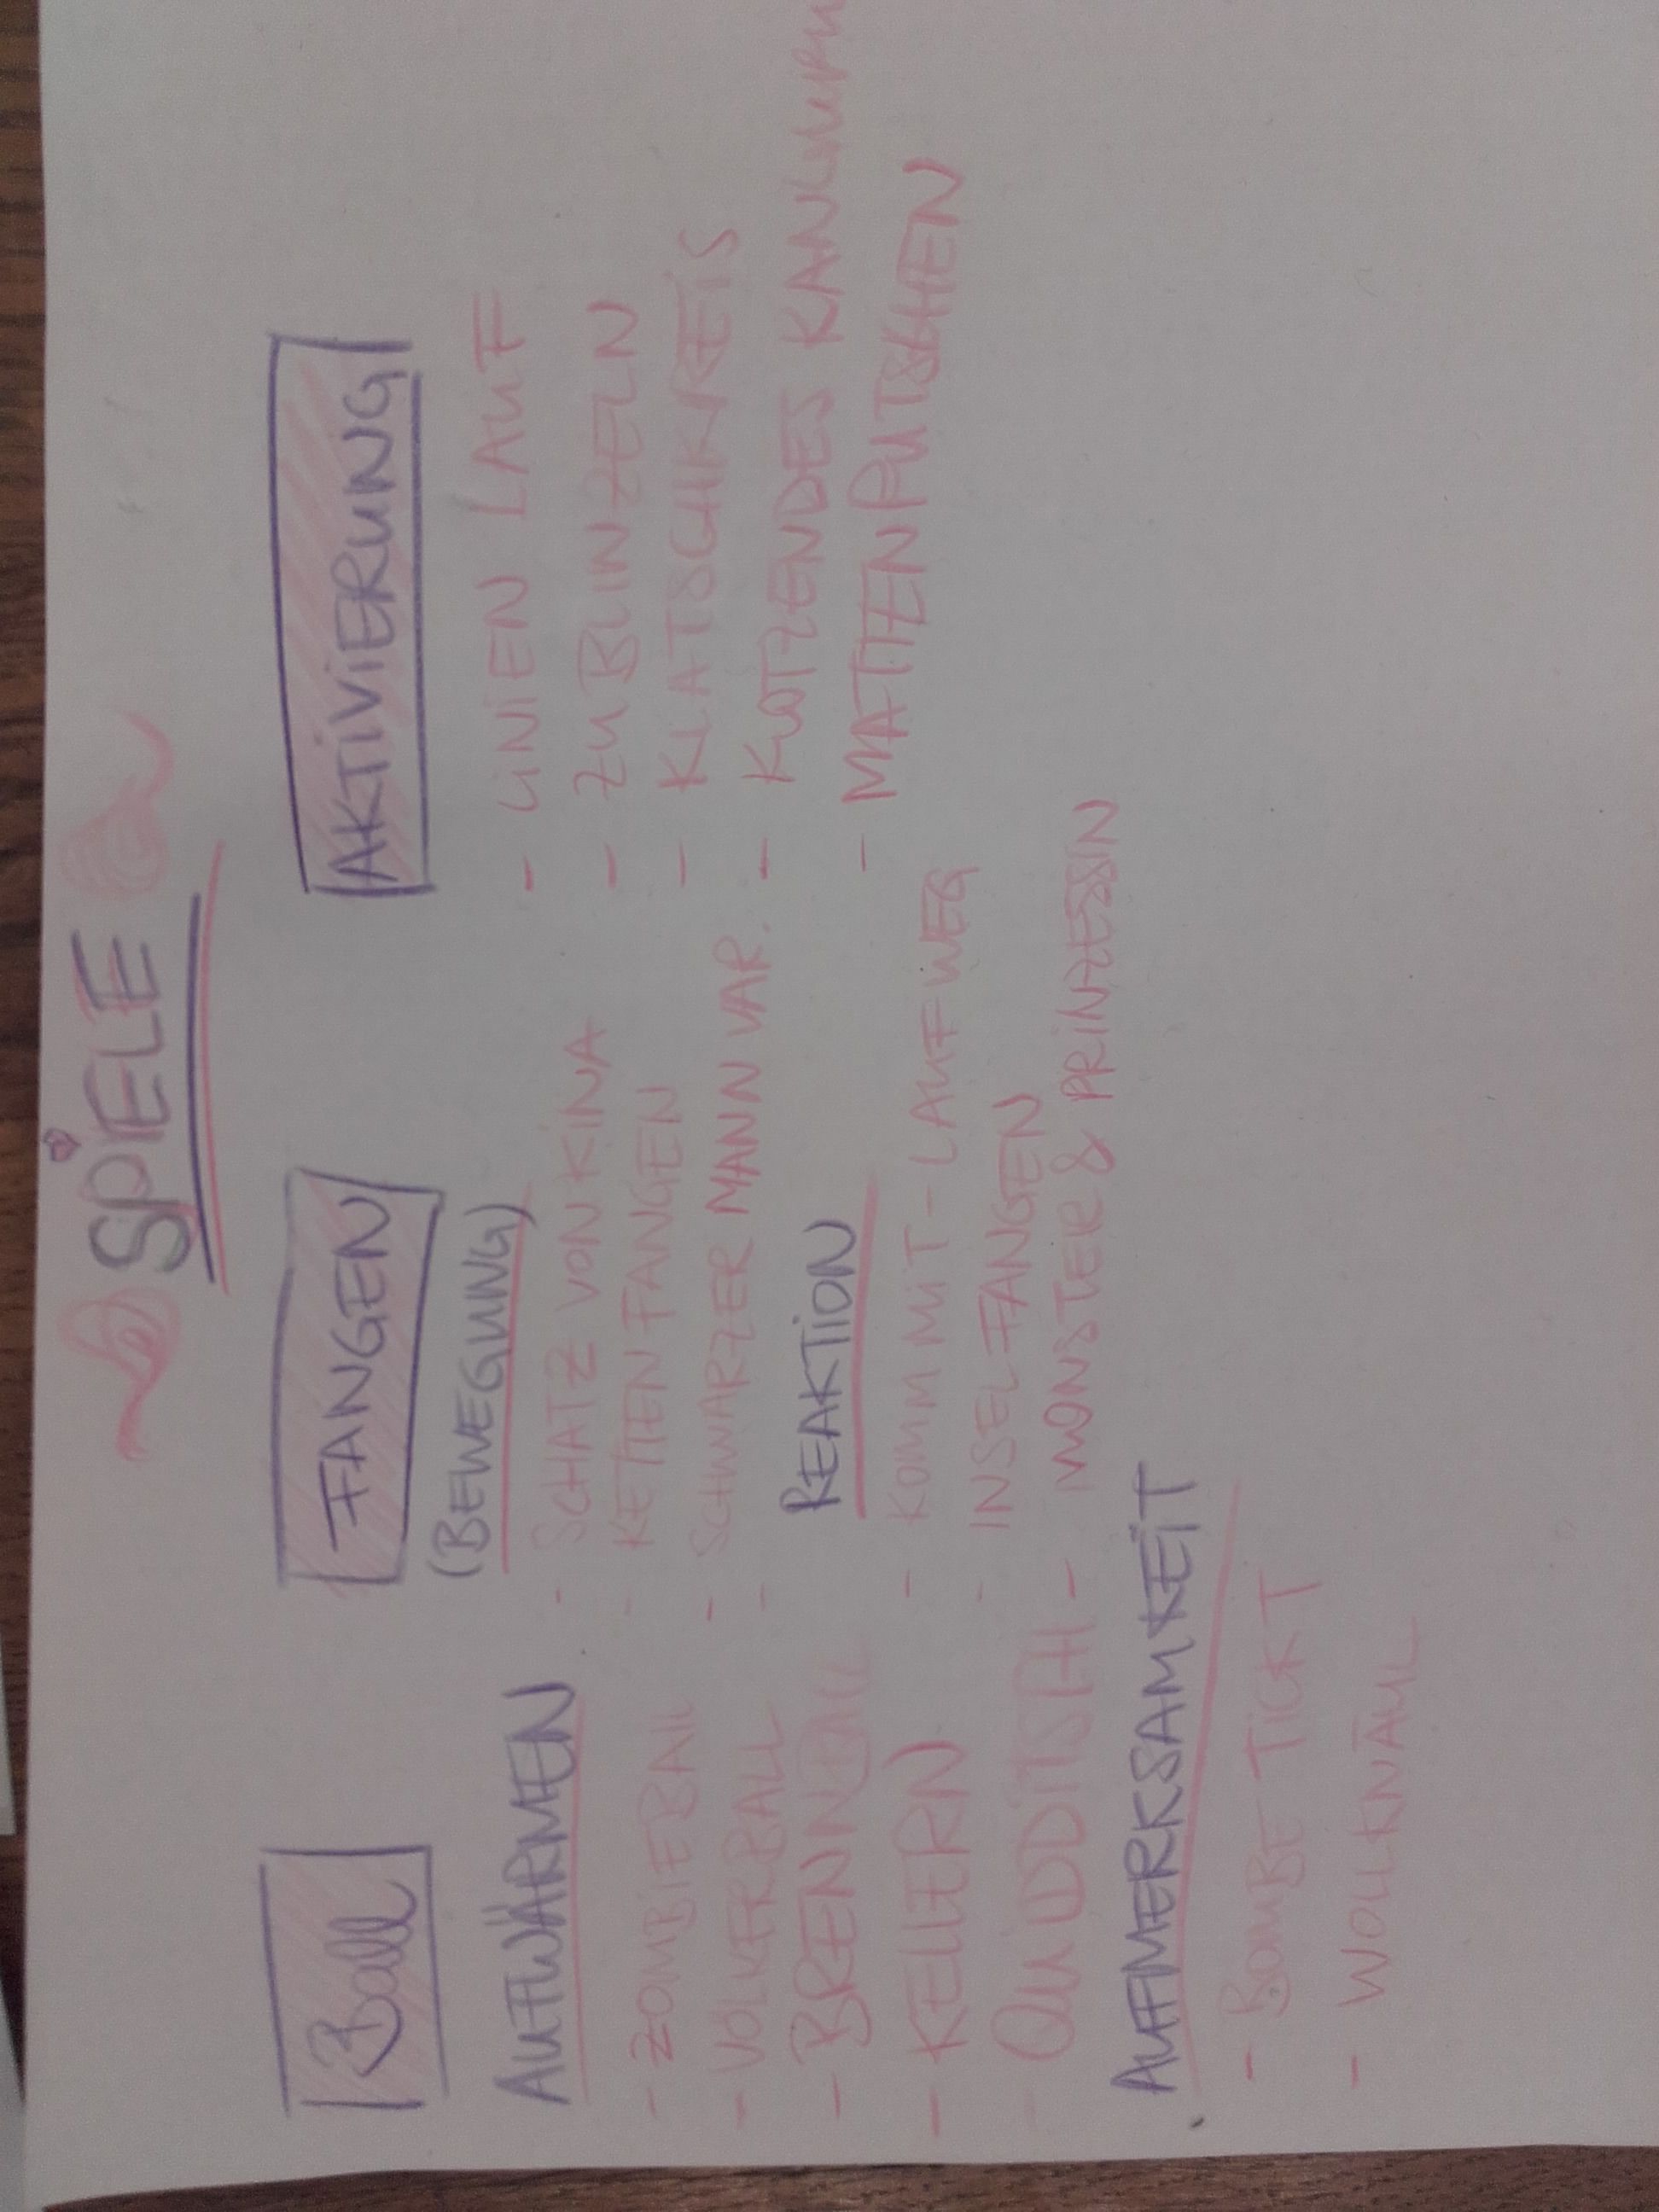 SPiELE
Ball
AUFWÄRMEN
- ZOMBiEBAll
- VÖLKERBALL
- BRENNBALL
- KELLERN
- QUIDDITSH
AUFMERKSAMKEiT
- BOMBE TICKT
- WOLLKNÄUL
FANGEN
(BEWEGUNG)
- SCHATZ VON KINA
- KETTENFANGEN
- SCHWARZER MANN VAR.
-
REAKTiON
- KOMM MIT - LAUF WEG
- INSELFANGEN
- MONSTER & PRiNZESSIN
AKTiViERUNG
- LiNiEN LAUF
- ZUBLINZELN
- KLATSCHKREiS
- KOTZENDES
- MATTENPUTSCHEN